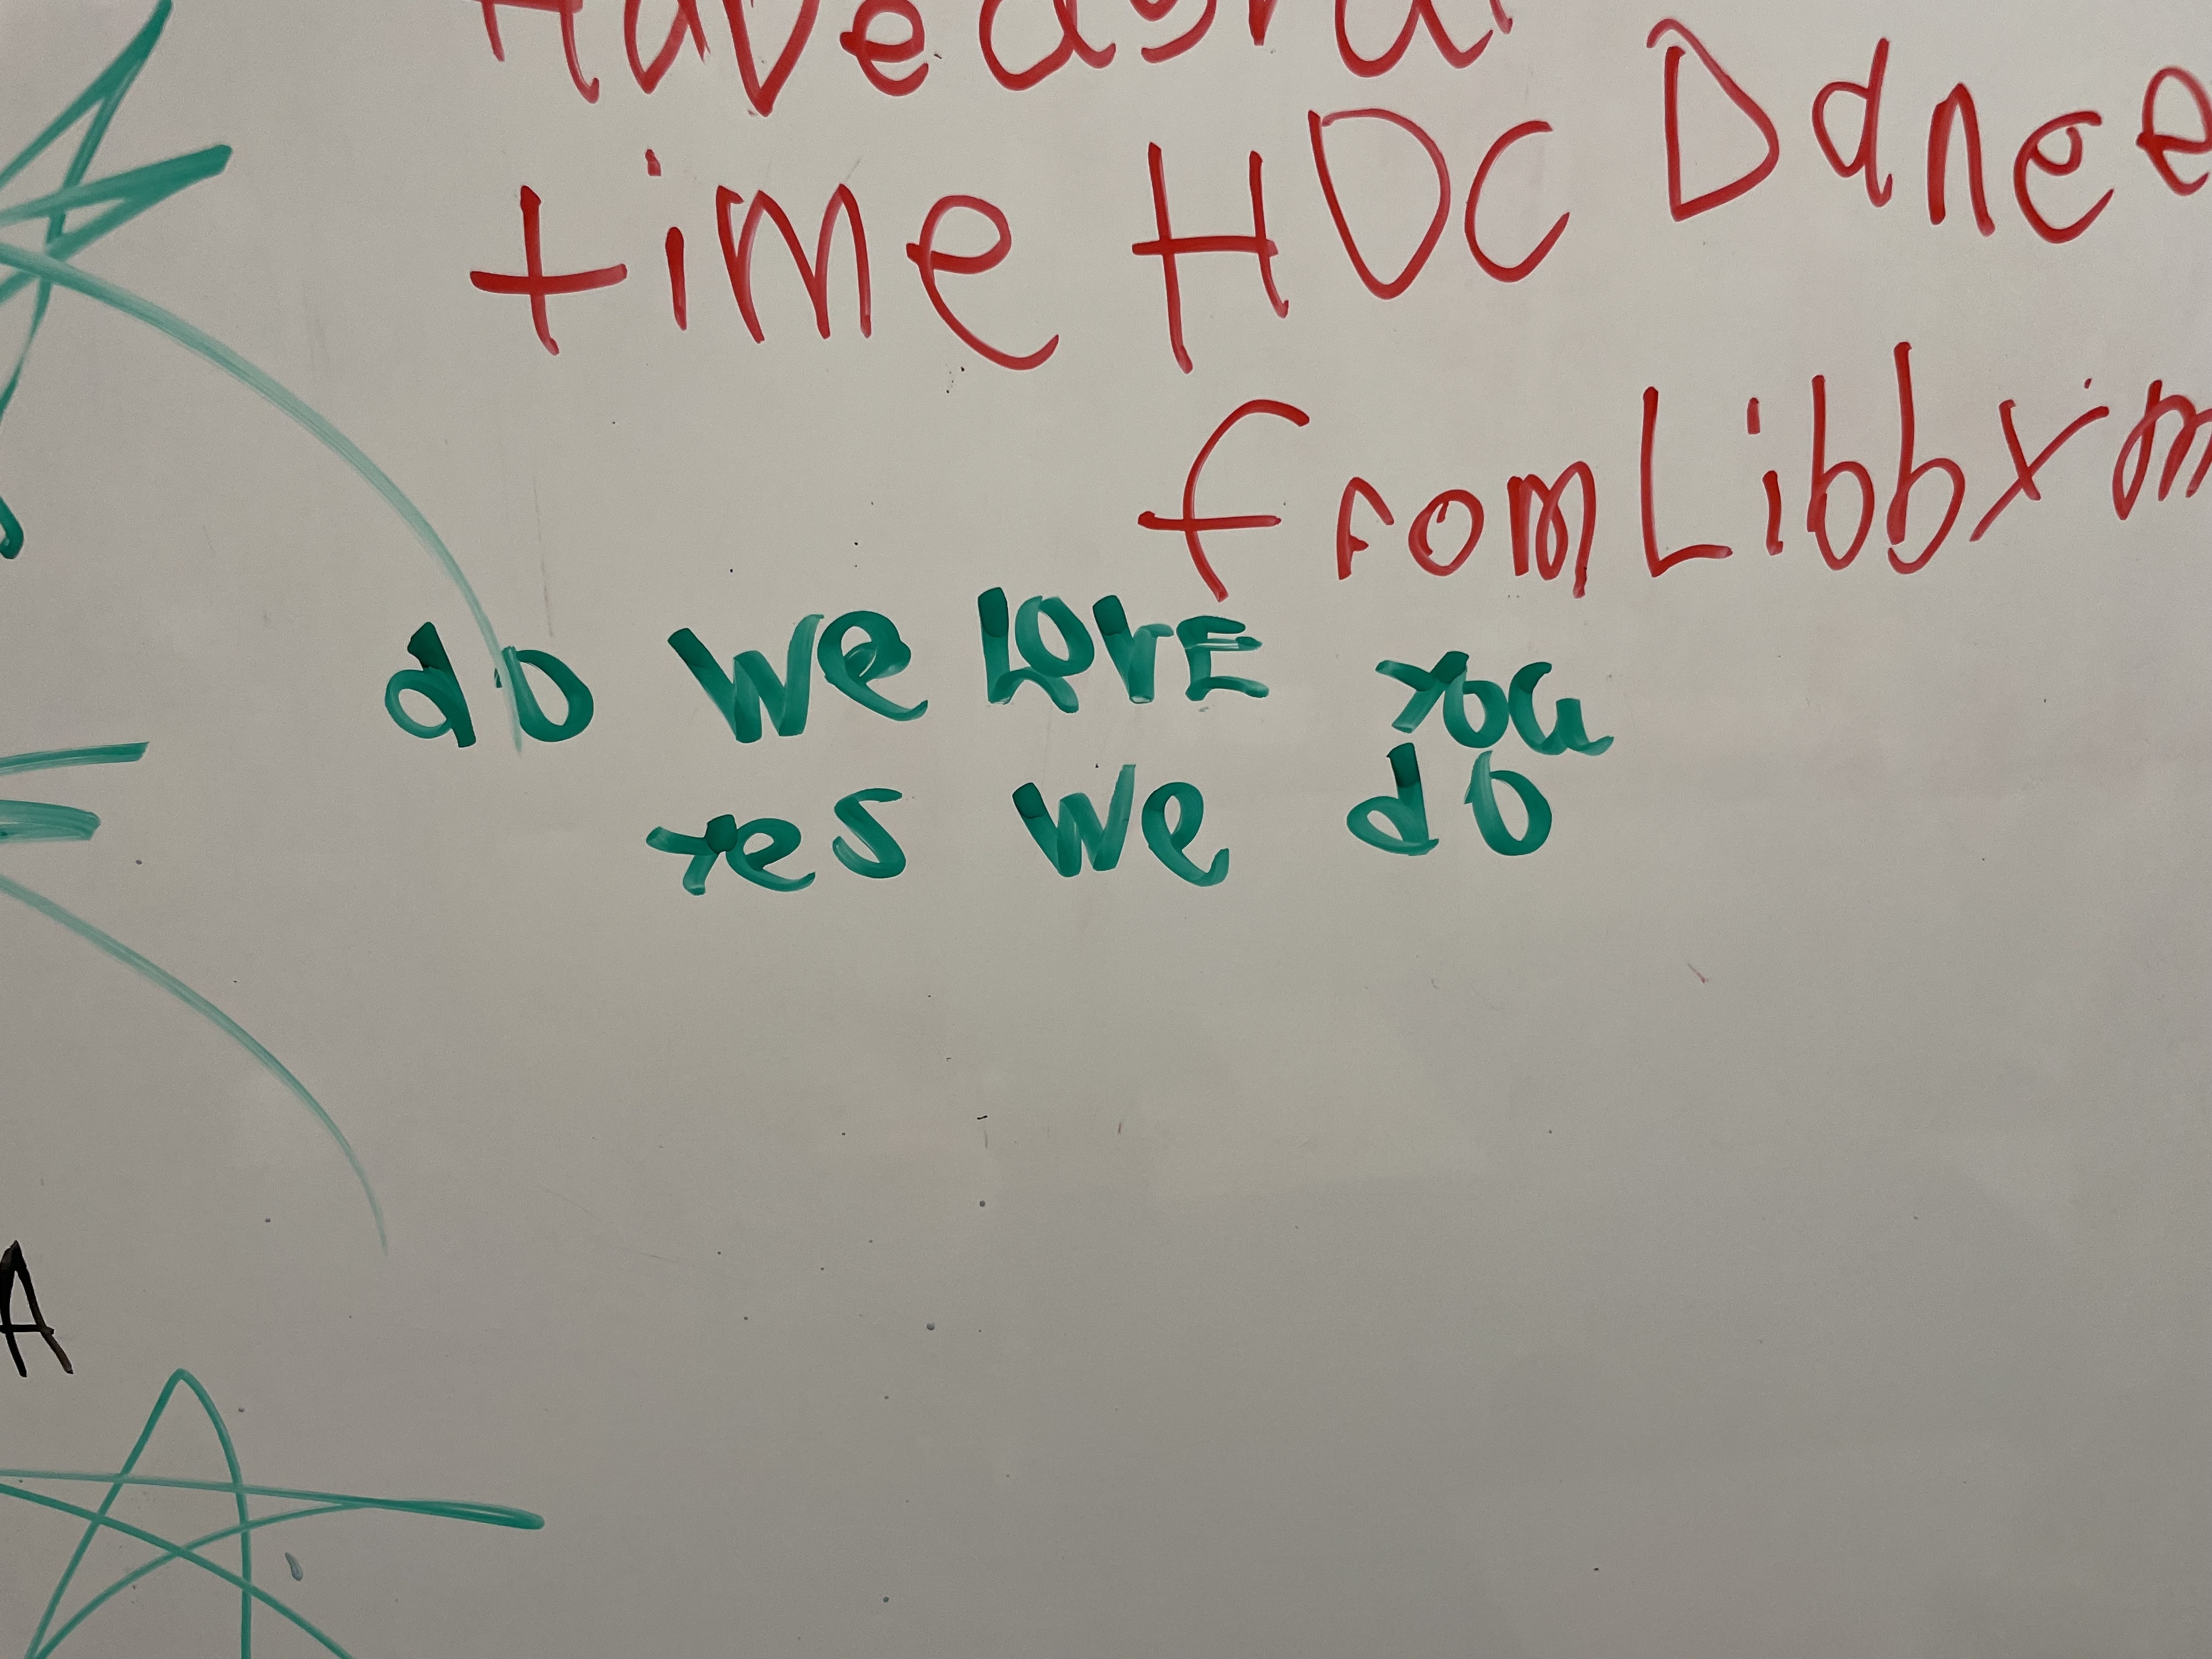 Have
time HDC Dance
from Libby m
do we LOVE you
yes we do
A